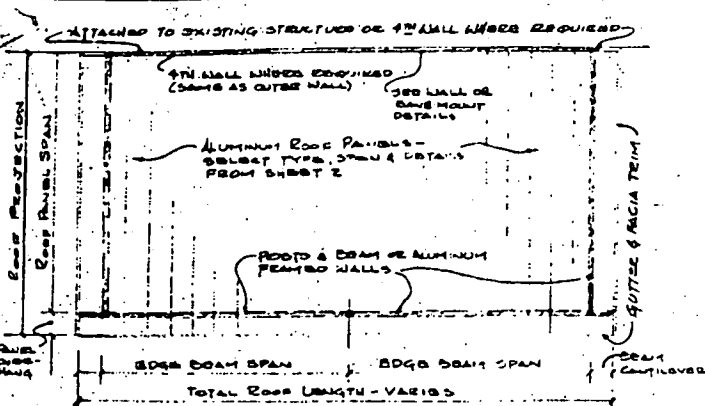 ATTACHED TO EXISTING STRUCTURE OR 4TH WALL WHERE REQUIRED
4TH WALL WHERE REQUIRED
(SAME AS OUTER WALL)
SEE WALL OR
EAVE MOUNT
DETAILS
ROOF PROJECTION
ROOF PANEL SPAN
ALUMINUM ROOF PANELS-
SELECT TYPE, SPAN & DETAILS
FROM SHEET 2
GUTTER & FACIA TRIM
POSTS & BEAM OR ALUMINUM
FRAMED WALLS
PANEL
OVER-
HANG
EDGE BEAM SPAN
EDGE BEAM SPAN
BEAM
CANTILEVER
TOTAL ROOF LENGTH - VARIES